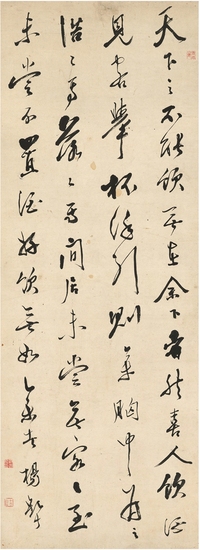 天下之不能飲無在余下者然喜人飲酒
見客舉杯徐引則余胸中為之
浩〻焉落〻焉閒居未嘗無客〻至
未嘗不置酒好飲無如余者楊